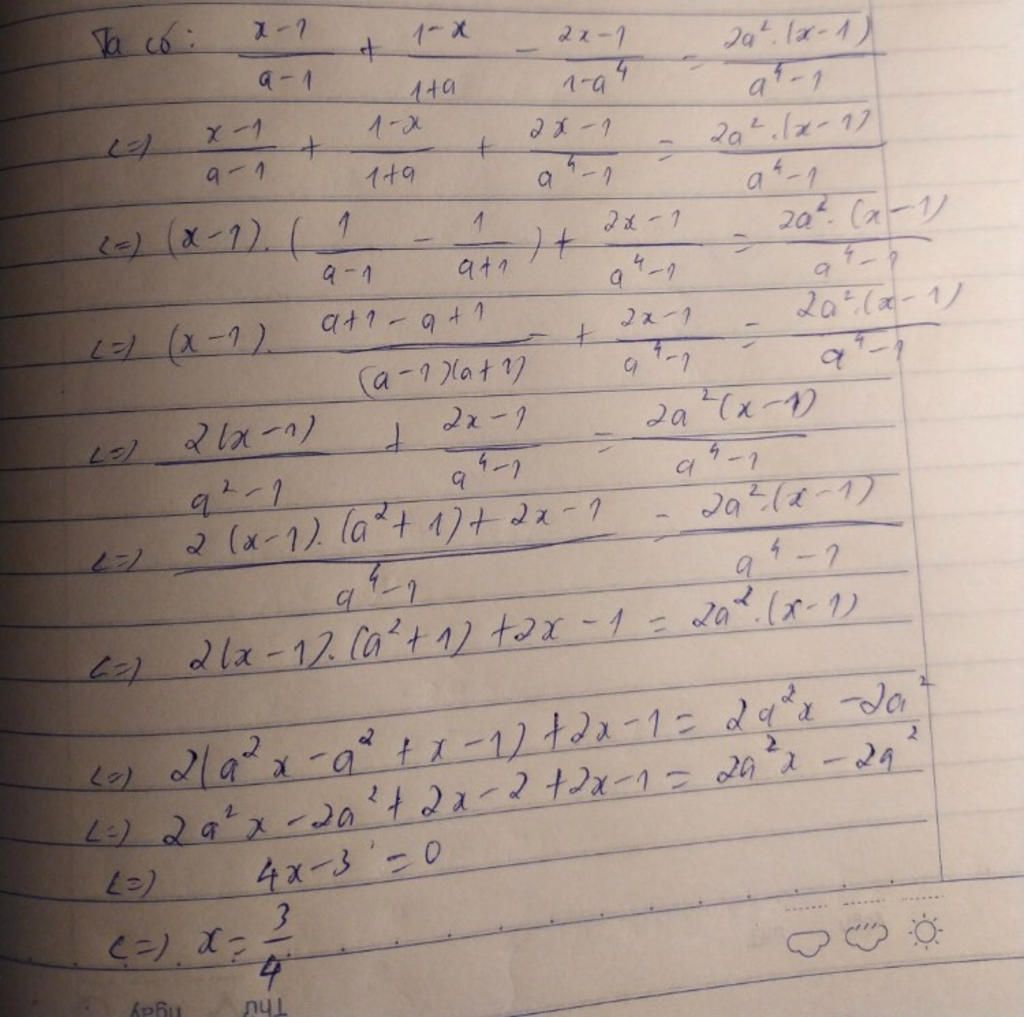 Ta có: \frac{x-1}{a-1} + \frac{1-x}{1+a} - \frac{2x-1}{1-a^4} = \frac{2a^2.(x-1)}{a^4-1}
<=> \frac{x-1}{a-1} + \frac{1-x}{1+a} + \frac{2x-1}{a^4-1} = \frac{2a^2.(x-1)}{a^4-1}
<=> (x-1).(\frac{1}{a-1} - \frac{1}{a+1}) + \frac{2x-1}{a^4-1} = \frac{2a^2.(x-1)}{a^4-1}
<=> (x-1). \frac{a+1-a+1}{(a-1)(a+1)} + \frac{2x-1}{a^4-1} = \frac{2a^2.(x-1)}{a^4-1}
<=> \frac{2(x-1)}{a^2-1} + \frac{2x-1}{a^4-1} = \frac{2a^2(x-1)}{a^4-1}
<=> \frac{2(x-1).(a^2+1)+2x-1}{a^4-1} = \frac{2a^2.(x-1)}{a^4-1}
<=> 2(x-1).(a^2+1)+2x-1 = 2a^2.(x-1)
<=> 2(a^2x-a^2+x-1)+2x-1 = 2a^2x-2a^2
<=> 2a^2x-2a^2+2x-2+2x-1 = 2a^2x-2a^2
<=> 4x-3 = 0
<=> x = \frac{3}{4}
Thu ngày